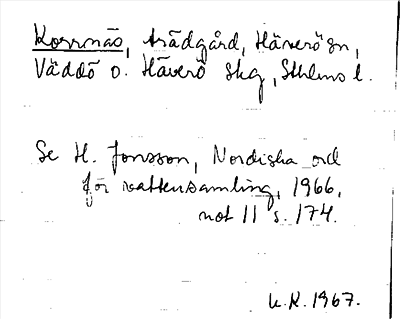 Korrnäs, trädgård, Häverö sn,
Väddö o. Häverö skg, Sthlms l.
Se H. Jonsson, Nordiska ord
för vattensamling, 1966,
not 11 s. 174.
U.K. 1967.